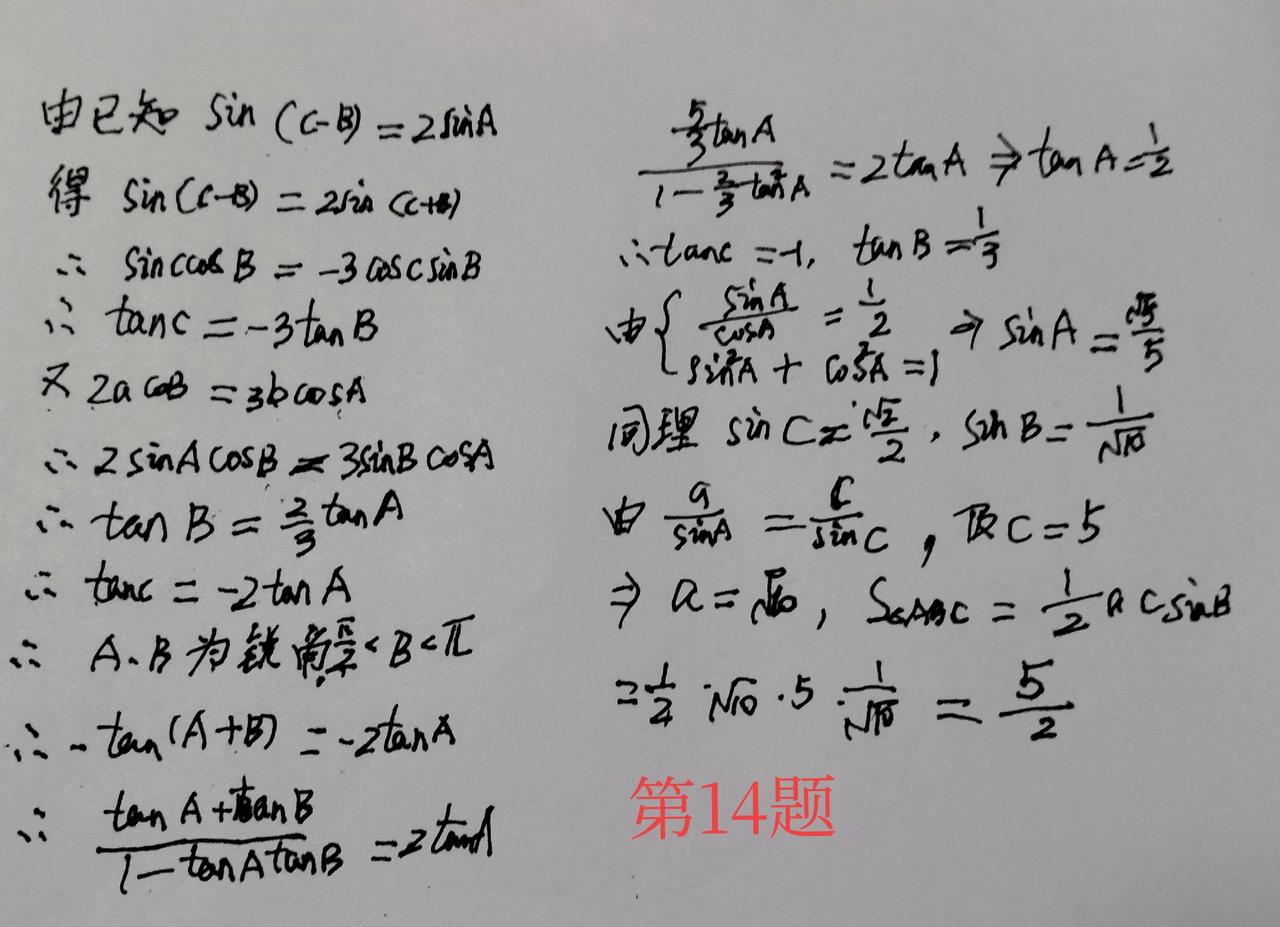 由已知 sin (C-B) = 2sinA
得 sin(C-B) = 2sin (C+B)
∴ sinCcosB = -3cosCsinB
∴ tanC = -3tanB
又 2acosB = 3bcosA
∴ 2sinAcosB = 3sinBcosA
∴ tanB = 2/3 tanA
∴ tanC = -2tanA
∴ A、B为锐角 π/2 < B < π
∴ -tan(A+B) = -2tanA
∴ (tanA+tanB)/(1-tanAtanB) = 2tanA
(5/3 tanA)/(1-2/3 tan²A) = 2tanA ⇒ tanA = 1/2
∴ tanC = -1, tanB = 1/3
由 { sinA/cosA = 1/2
sin²A + cos²A = 1 ⇒ sinA = √5/5
同理 sinC = √2/2 , sinB = 1/√10
由 a/sinA = c/sinC , 及C = 5
⇒ a = √10 , S△ABC = 1/2 acsinB
= 1/2 · √10 · 5 · 1/√10 = 5/2
第14题